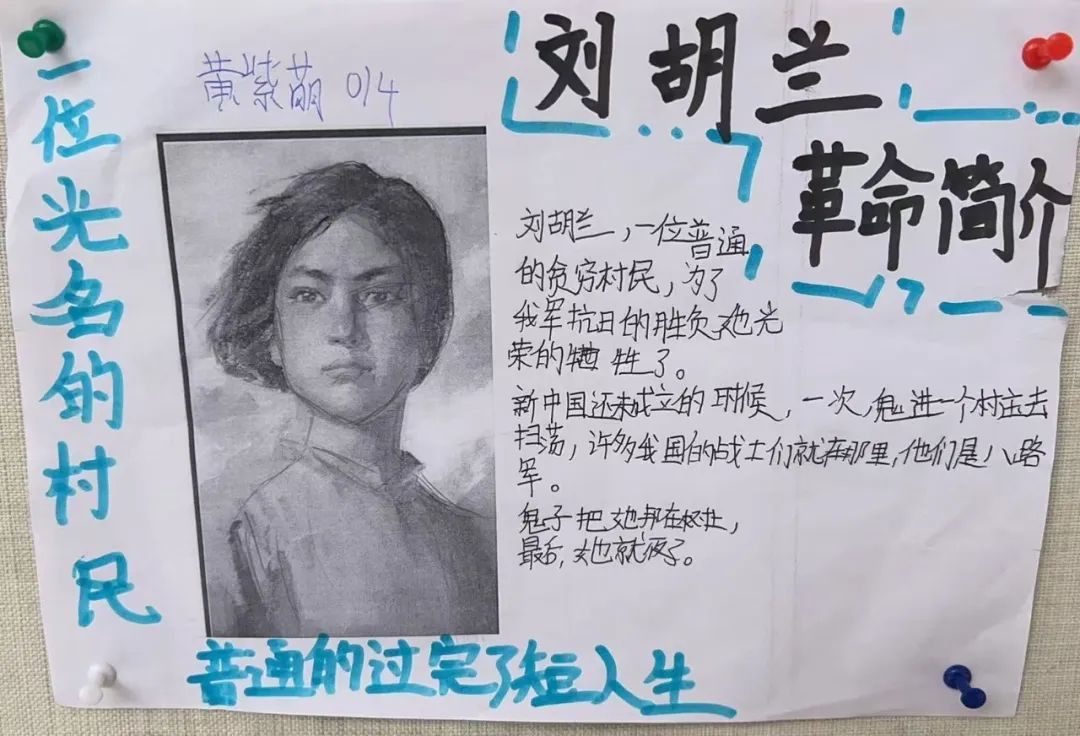 刘胡兰
革命简介
一位光名的村民
黄紫萌 014
刘胡兰，一位普通
的贫穷村民，为了
我军抗日的胜负她光
荣的牺牲了。
新中国还未成立的时候，一次，鬼进一个村庄去
扫荡，许多我国的战士们就在那里，他们是八路
军。
鬼子把她绑在树上，
最后，她就了。
普通的过完了短人生